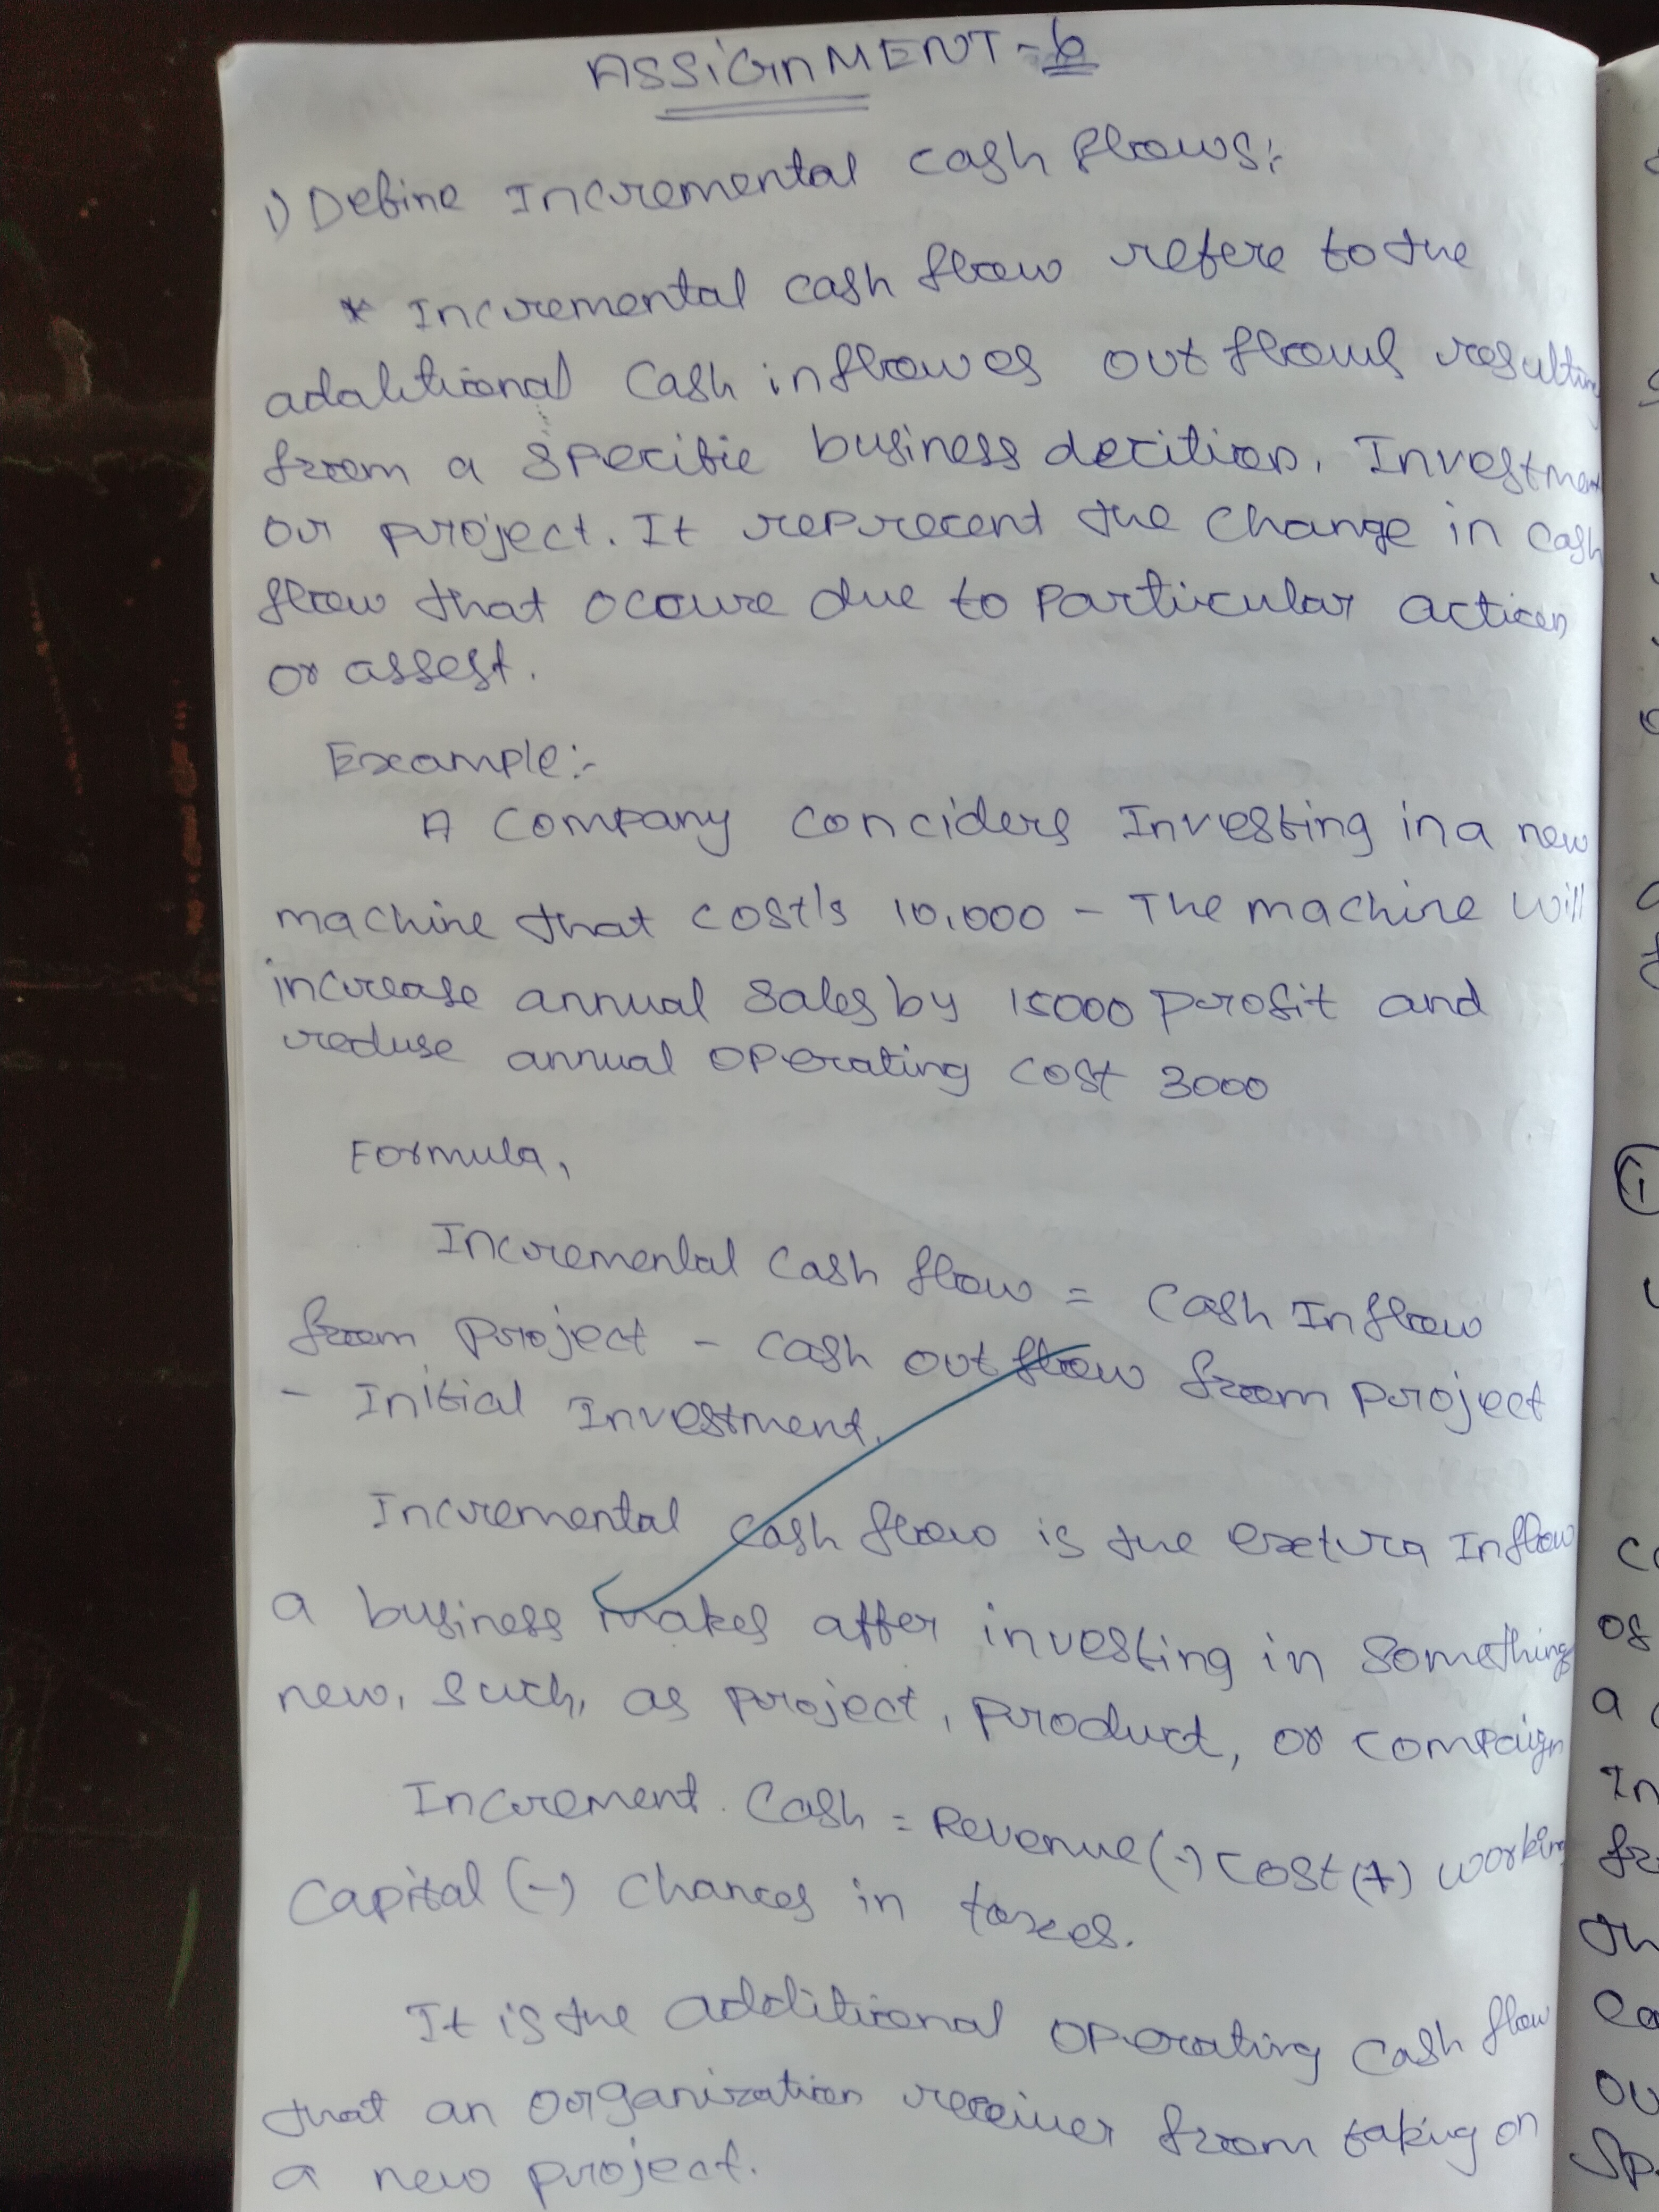 ASSIGNMENT - 6
1) Define Incremental cash flows:-
* Incremental cash flow refere to the
adalitional cash inflowes out flows resulting
from a specific business decition, Investment
or project. It reprecent the change in cash
flow that ocoure due to particular action
or assest.
Example:-
A company conciders Investing in a new
machine that cost's 10,000 - The machine will
increase annual sales by 15000 profit and
reduse annual operating cost 3000
Formula,
Incremental cash flow = cash Inflow
from project - cash out flow from project
- Initial Investment.
Incremental cash flow is the extura Inflow
a business makes after investing in something
new, such, as project, product, or compaign
Increment. Cash = Revenue (-) cost (+) working
capital (-) chances in taxes.
It is the additional operating cash flow
that an organization receiver from taking on
a new project.